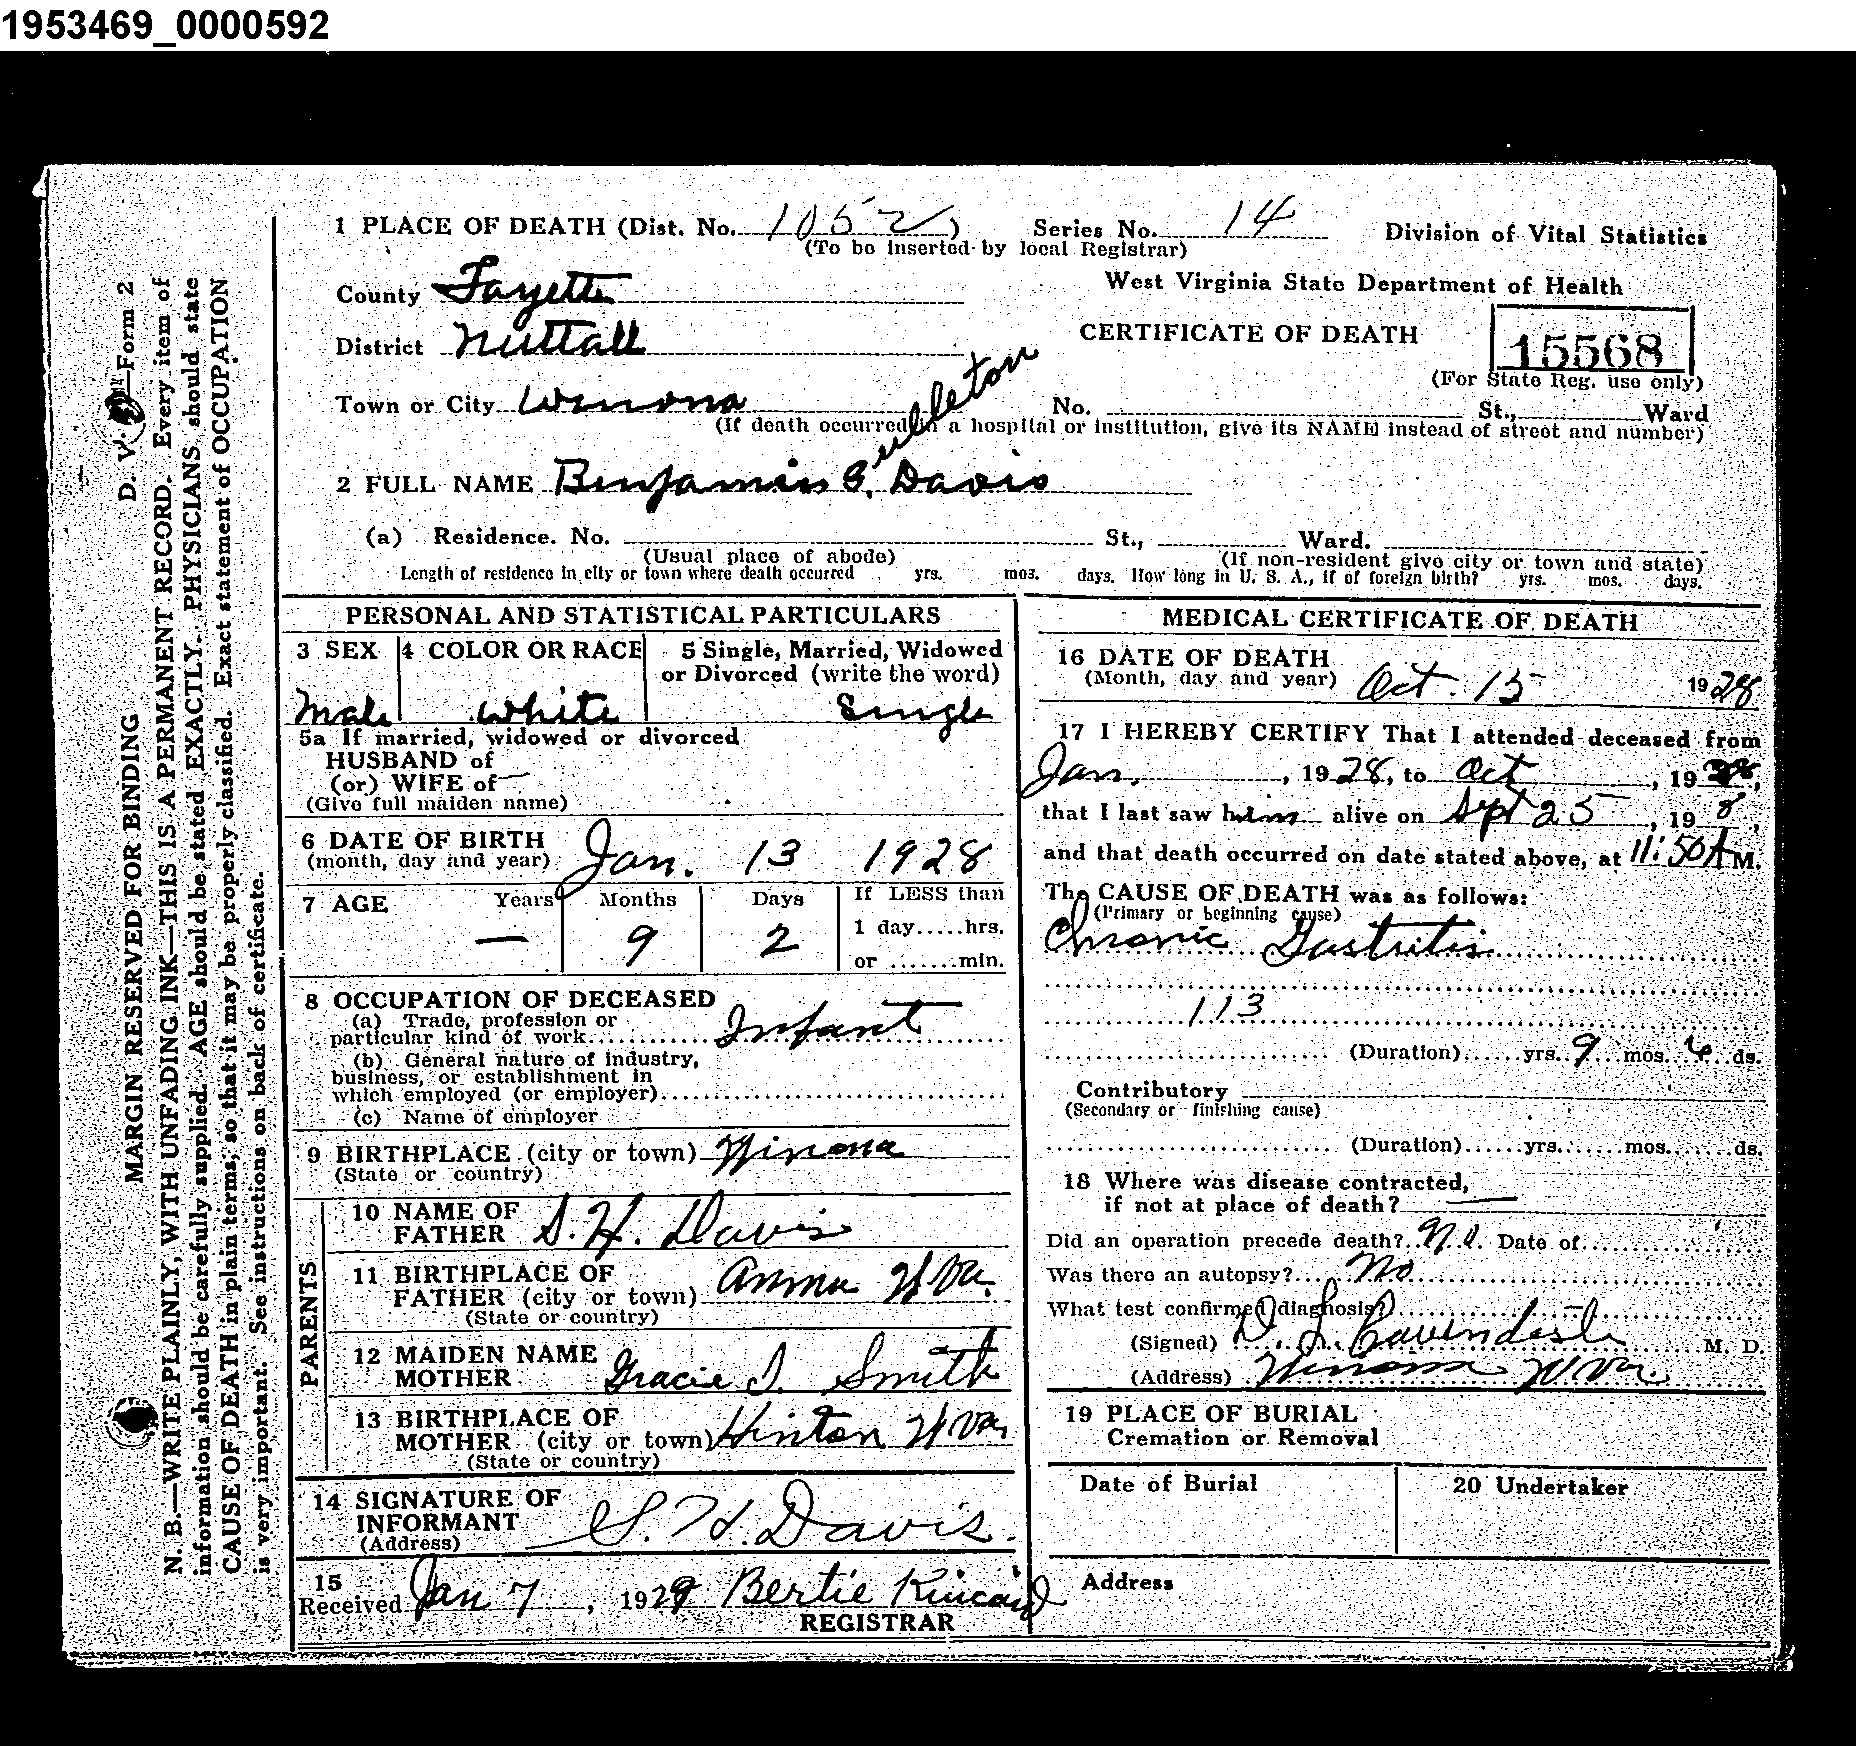 1953469_0000592
1 PLACE OF DEATH (Dist. No. 1052) Series No. 14 Division of Vital Statistics
(To be inserted by local Registrar)
County Fayette West Virginia State Department of Health
District Nuttall CERTIFICATE OF DEATH 15568
(For State Reg. use only)
Town or City Winona No. St., Ward
(If death occurred in a hospital or institution, give its NAME instead of street and number)
2 FULL NAME Benjamin G. Davis
(a) Residence. No. St., Ward.
(Usual place of abode) (If non-resident give city or town and state)
Length of residence in city or town where death occurred yrs. mos. days. How long in U. S. A., if of foreign birth? yrs. mos. days.
PERSONAL AND STATISTICAL PARTICULARS
3 SEX 4 COLOR OR RACE 5 Single, Married, Widowed
or Divorced (write the word)
Male White Single
5a If married, widowed or divorced
HUSBAND of
(or) WIFE of —
(Give full maiden name)
6 DATE OF BIRTH
(month, day and year) Jan. 13 1928
7 AGE Years Months Days If LESS than
1 day.....hrs.
— 9 2
or .......min.
8 OCCUPATION OF DECEASED
(a) Trade, profession or
particular kind of work Infant
(b) General nature of industry,
business, or establishment in
which employed (or employer)
(c) Name of employer
9 BIRTHPLACE (city or town) Winona
(State or country)
PARENTS
10 NAME OF
FATHER S. H. Davis
11 BIRTHPLACE OF
FATHER (city or town) W Va.
(State or country)
12 MAIDEN NAME
MOTHER Gracie I. Smith
13 BIRTHPLACE OF
MOTHER (city or town) Hinton W Va
(State or country)
14 SIGNATURE OF
INFORMANT S. H. Davis.
(Address)
15
Received Jan 7, 1929 Bertie Kincaid
REGISTRAR
MEDICAL CERTIFICATE OF DEATH
16 DATE OF DEATH
(Month, day and year) Oct. 15 1928
17 I HEREBY CERTIFY That I attended deceased from
Jan. , 1928, to Oct , 1928,
that I last saw him alive on Sept 25, 19 8,
and that death occurred on date stated above, at 11:50 A M.
The CAUSE OF DEATH was as follows:
(Primary or beginning cause)
Chronic Gastritis
113
(Duration)......yrs. 9 mos. 6 ds.
Contributory
(Secondary or finishing cause)
(Duration)......yrs.......mos.......ds.
18 Where was disease contracted,
if not at place of death? —
Did an operation precede death? No. Date of
Was there an autopsy? No
What test confirmed diagnosis?
(Signed) D. L. Cavendish M. D.
(Address) Winona W Va.
19 PLACE OF BURIAL
Cremation or Removal
Date of Burial 20 Undertaker
Address
D. V. S.—Form 2
MARGIN RESERVED FOR BINDING
N. B.—WRITE PLAINLY, WITH UNFADING INK—THIS IS A PERMANENT RECORD. Every item of
information should be carefully supplied. AGE should be stated EXACTLY. PHYSICIANS should state
CAUSE OF DEATH in plain terms, so that it may be properly classified. Exact statement of OCCUPATION
is very important. See instructions on back of certificate.